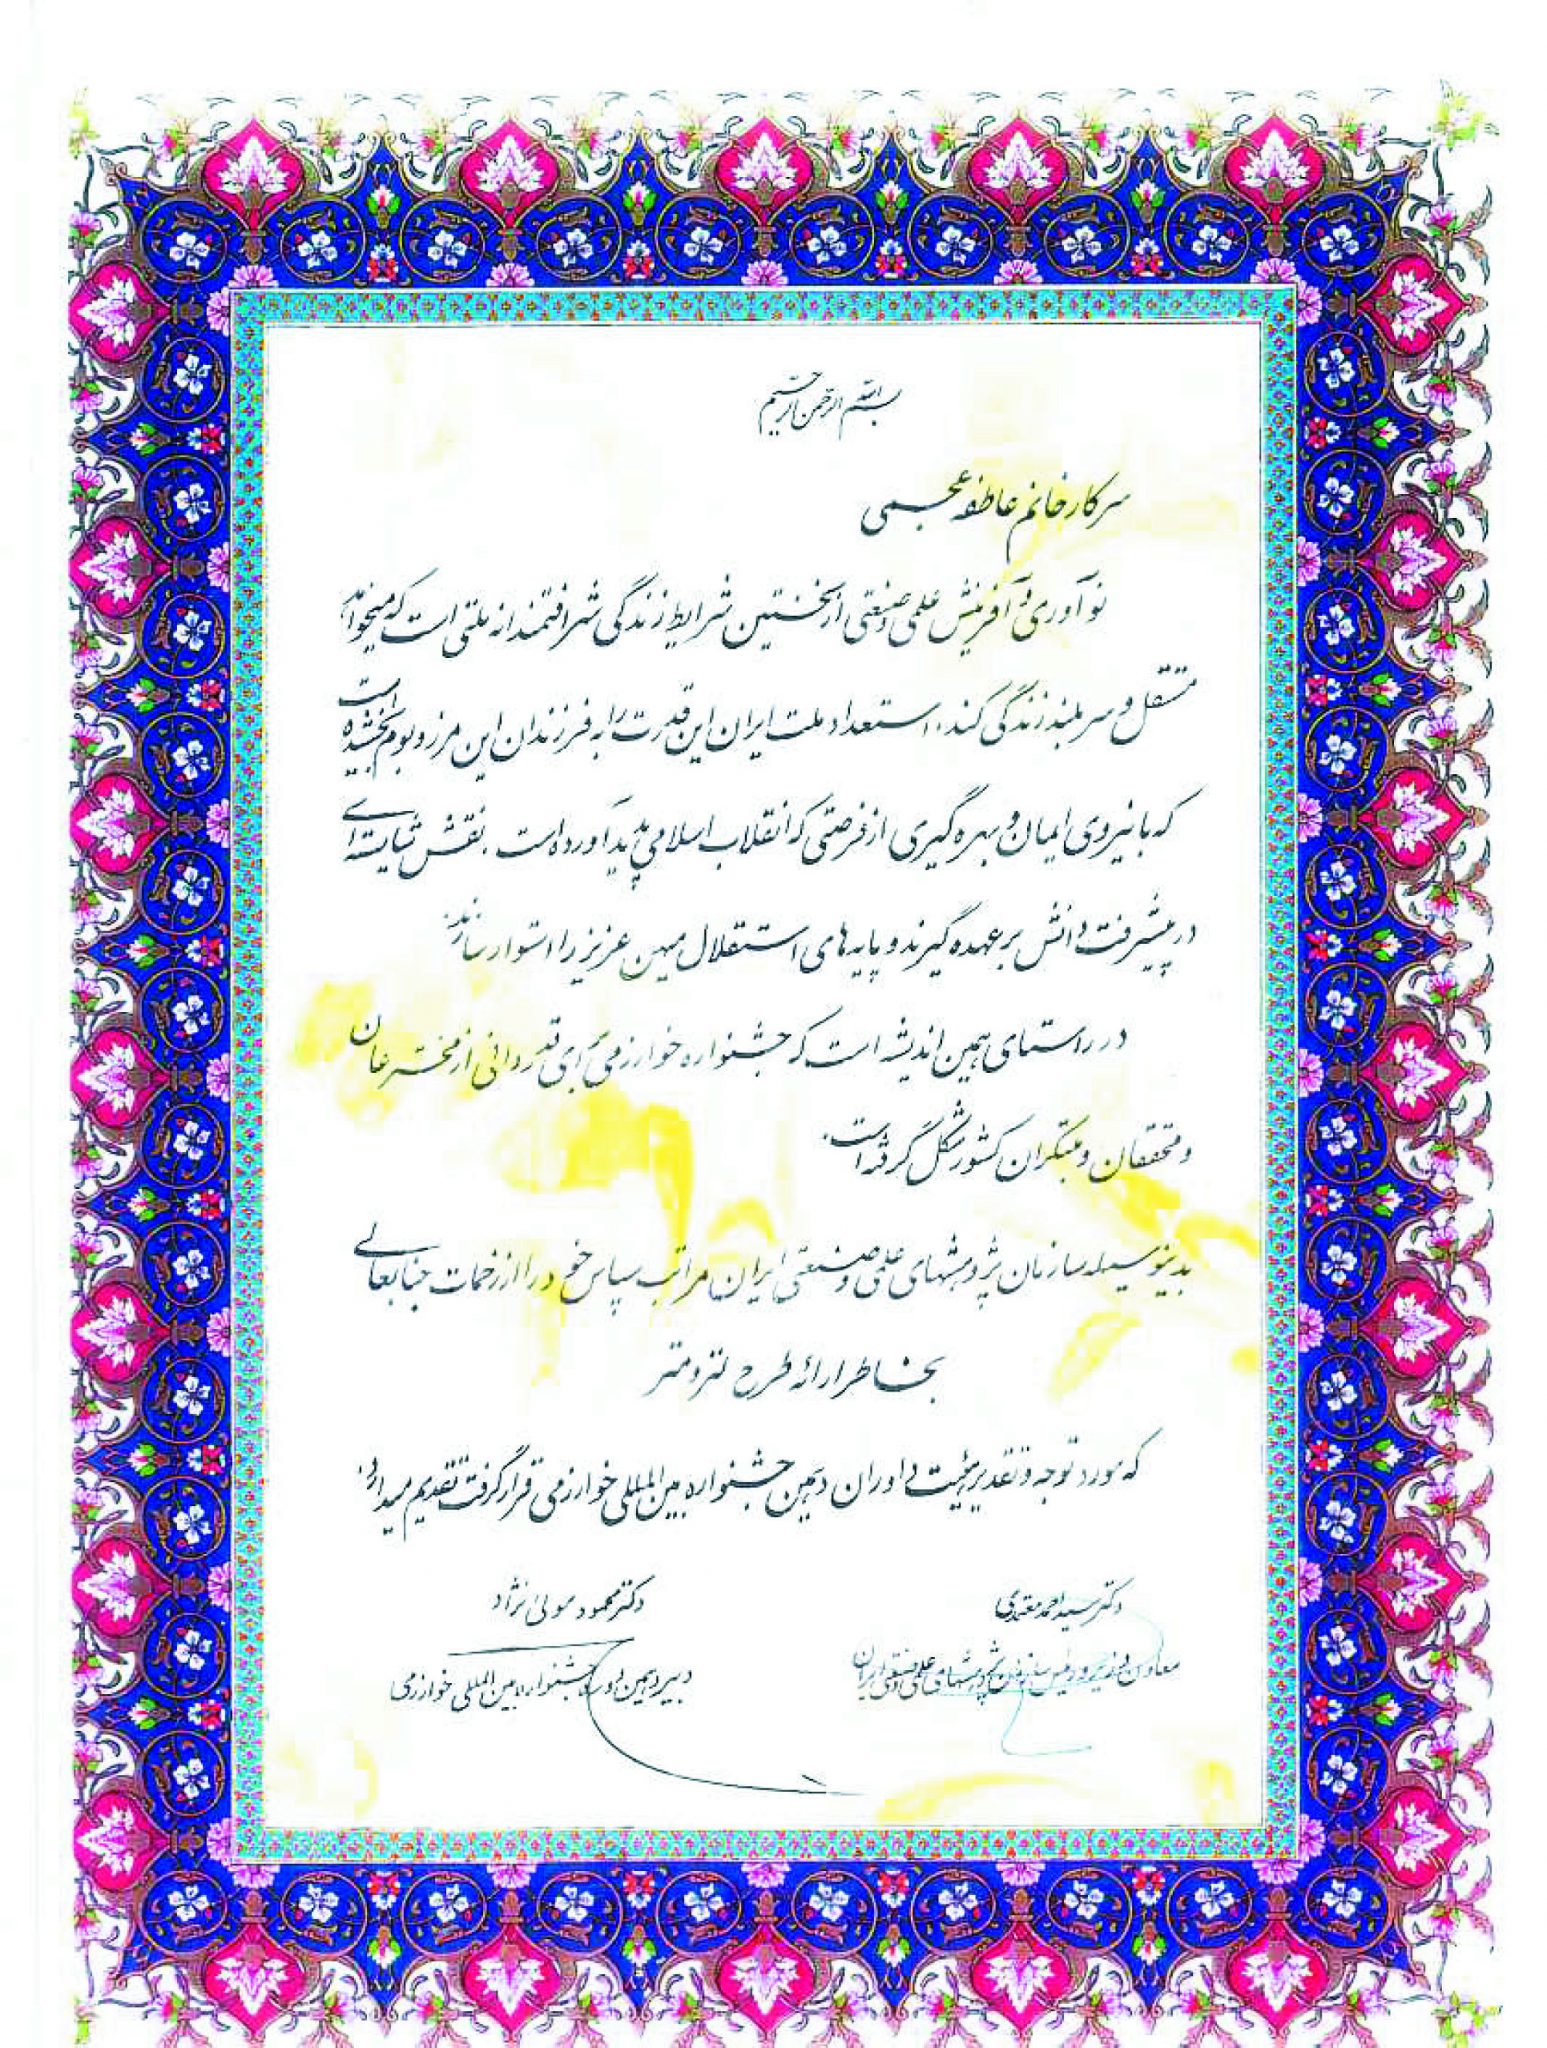 بسم الله الرحمن الرحیم
سرکار خانم عاطفه عجمی
نوآوری و آفرینش علمی و صنعتی از نخستین شرایط زندگی شرافتمندانه ملتی است که میخواهد
مستقل و سربلند زندگی کند. استعداد ملت ایران این قدرت را به فرزندان این مرز و بوم بخشیده است
که با نیروی ایمان و بهره گیری از فرصتی که انقلاب اسلامی پدید آورده است، نقش شایسته ای
در پیشرفت دانش بر عهده گیرند و پایه های استقلال میهن عزیز را استوار سازند.
در راستای همین اندیشه است که جشنواره خوارزمی برای قدردانی از مخترعان
و محققان و مبتکران کشور شکل گرفته است.
بدینوسیله سازمان پژوهشهای علمی و صنعتی ایران مراتب سپاس خود را از زحمات جنابعالی
بخاطر ارائه طرح لنزومتر
که مورد توجه و تقدیر هیئت داوران دهمین جشنواره بین المللی خوارزمی قرار گرفت تقدیم میدارد.
دکتر سید احمد معتمدی
معاون وزیر و رئیس سازمان پژوهشهای علمی و صنعتی ایران
دکتر محمود مولی نژاد
دبیر دهمین دوره جشنواره بین المللی خوارزمی